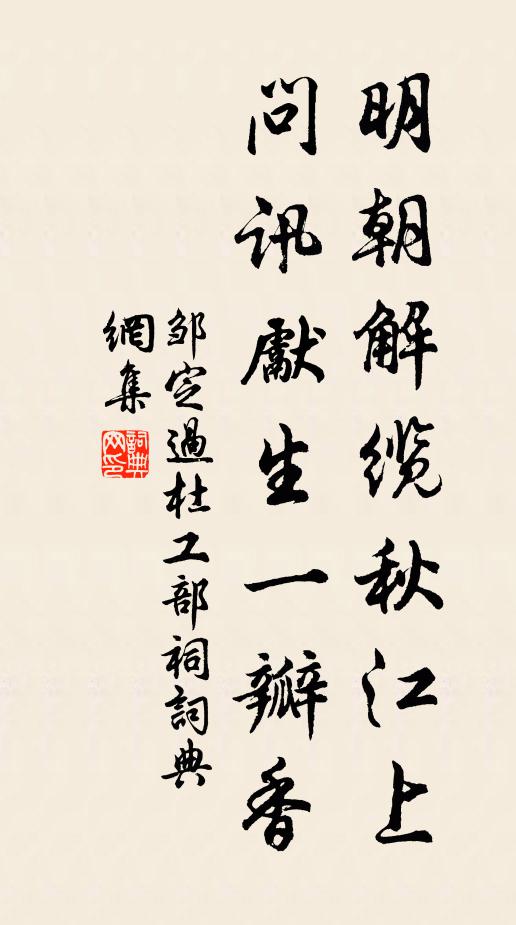 明朝解缆秋江上
問訊獻生一瓣香
邹定過杜工部祠詞典
網集
詞典
网印